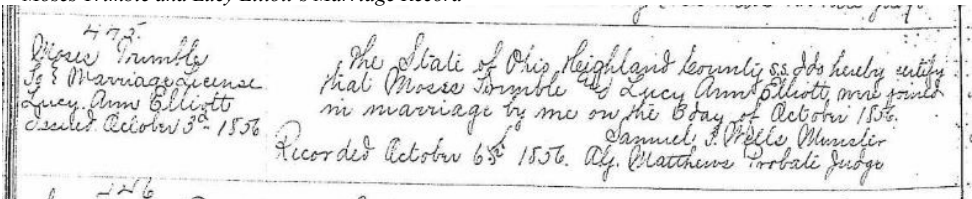 Moses Trimble and Lucy Elliott's Marriage Record
475.
Moses Trumble
To } Marriage License
Lucy Ann Elliott
Issued October 3d 1856
The State of Ohio Highland County ss. I do hereby certify
that Moses Trimble & Lucy Ann Elliott were joined
in marriage by me on the 3 day of October 1856.
Samuel Wells Minister
Recorded October 6th 1856. Alf. Matthews Probate Judge